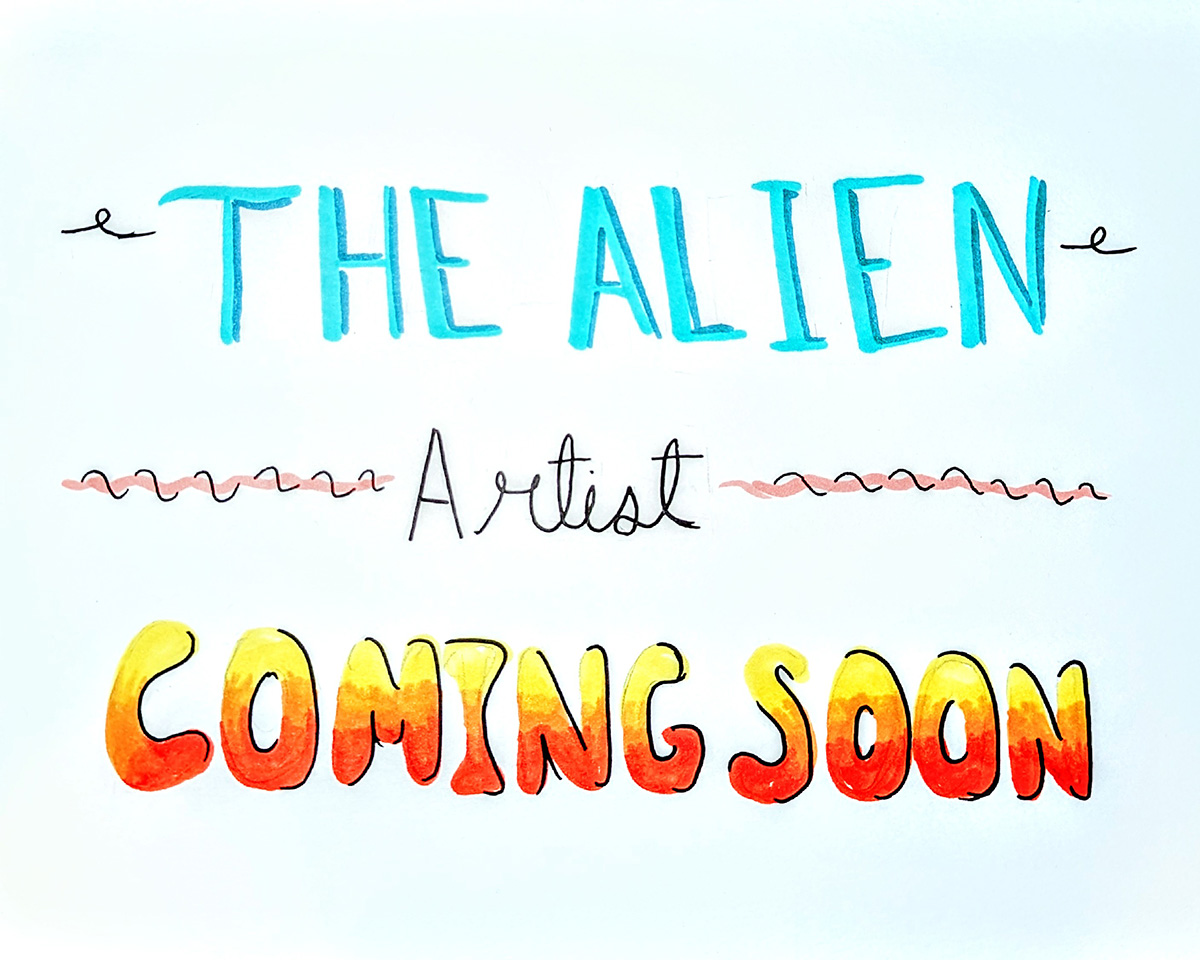 THE ALIEN
Artist
COMING SOON